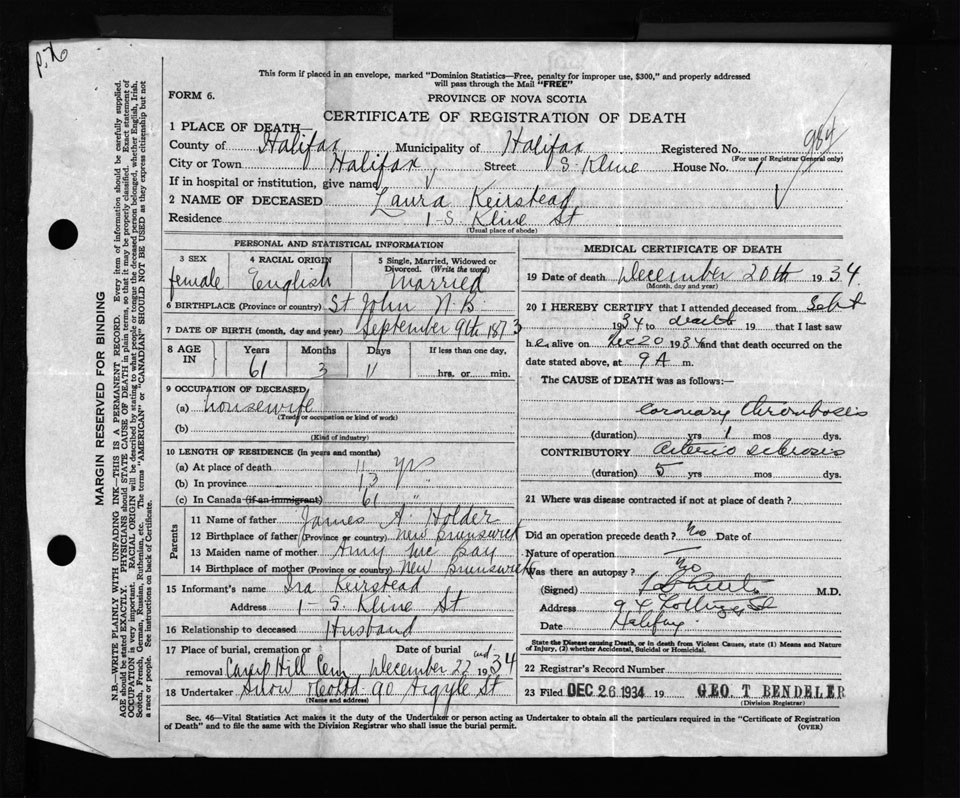 P. X
This form if placed in an envelope, marked "Dominion Statistics—Free, penalty for improper use, $300," and properly addressed
will pass through the Mail "FREE"
FORM 6.
PROVINCE OF NOVA SCOTIA
CERTIFICATE OF REGISTRATION OF DEATH
984
1 PLACE OF DEATH—
County of Halifax Municipality of Halifax Registered No.
(For use of Registrar General only)
City or Town Halifax, Street S. Kline House No. 1
If in hospital or institution, give name
2 NAME OF DECEASED Laura Keirstead
Residence 1-S. Kline St
(Usual place of abode)
PERSONAL AND STATISTICAL INFORMATION
3 SEX 4 RACIAL ORIGIN 5 Single, Married, Widowed or
Divorced. (Write the word)
female English Married
6 BIRTHPLACE (Province or country) St John N.B.
7 DATE OF BIRTH (month, day and year) September 9th 1873
8 AGE IN Years Months Days If less than one day,
61 3 11 hrs. or min.
9 OCCUPATION OF DECEASED
(a) housewife
(Trade or occupation or kind of work)
(b)
(Kind of industry)
10 LENGTH OF RESIDENCE (In years and months)
(a) At place of death 11 yrs
(b) In province 13 "
(c) In Canada (if an immigrant) 61 "
Parents
11 Name of father James A. Holder
12 Birthplace of father (Province or country) New Brunswick
13 Maiden name of mother Amy
14 Birthplace of mother (Province or country) New Brunswick
15 Informant's name Ira Keirstead
Address 1-S. Kline St
16 Relationship to deceased Husband
17 Place of burial, cremation or Date of burial
removal Camp Hill Cem December 22nd 1934
18 Undertaker Snow & Co Ltd 90 Argyle St
(Name and address)
MEDICAL CERTIFICATE OF DEATH
19 Date of death December 20th 1934.
(Month, day and year)
20 I HEREBY CERTIFY that I attended deceased from Sept
1934 to death 19 that I last saw
her alive on Dec 20 1934 and that death occurred on the
date stated above, at 9 A m.
The CAUSE of DEATH was as follows:—
Coronary thrombosis
(duration) yrs 1 mos dys.
CONTRIBUTORY Arterio sclerosis
(duration) 5 yrs mos dys.
21 Where was disease contracted if not at place of death?
Did an operation precede death? No Date of
Nature of operation —
Was there an autopsy? No
(Signed) M.D.
Address
Date Halifax
State the Disease causing Death, or in death from Violent Causes, state (1) Means and Nature of
Injury; (2) whether Accidental, Suicidal or Homicidal.
22 Registrar's Record Number
23 Filed DEC 26 1934 19 GEO. T BENDELER
(Division Registrar)
Sec. 46—Vital Statistics Act makes it the duty of the Undertaker or person acting as Undertaker to obtain all the particulars required in the "Certificate of Registration
of Death" and to file the same with the Division Registrar who shall issue the burial permit.
(OVER)
MARGIN RESERVED FOR BINDING
N.B.—WRITE PLAINLY WITH UNFADING INK—THIS IS A PERMANENT RECORD. Every item of information should be carefully supplied.
AGE should be stated EXACTLY. PHYSICIANS should STATE CAUSE OF DEATH in plain terms, so that it may be properly classified. Exact statement of
OCCUPATION is very important. RACIAL ORIGIN will be described by stating to what people or tongue the deceased person belonged, whether English, Irish,
Scotch, French, German, Russian, Ruthenian, etc. The terms "AMERICAN" or "CANADIAN" SHOULD NOT BE USED as they express citizenship but not
a race or people. See instructions on back of Certificate.